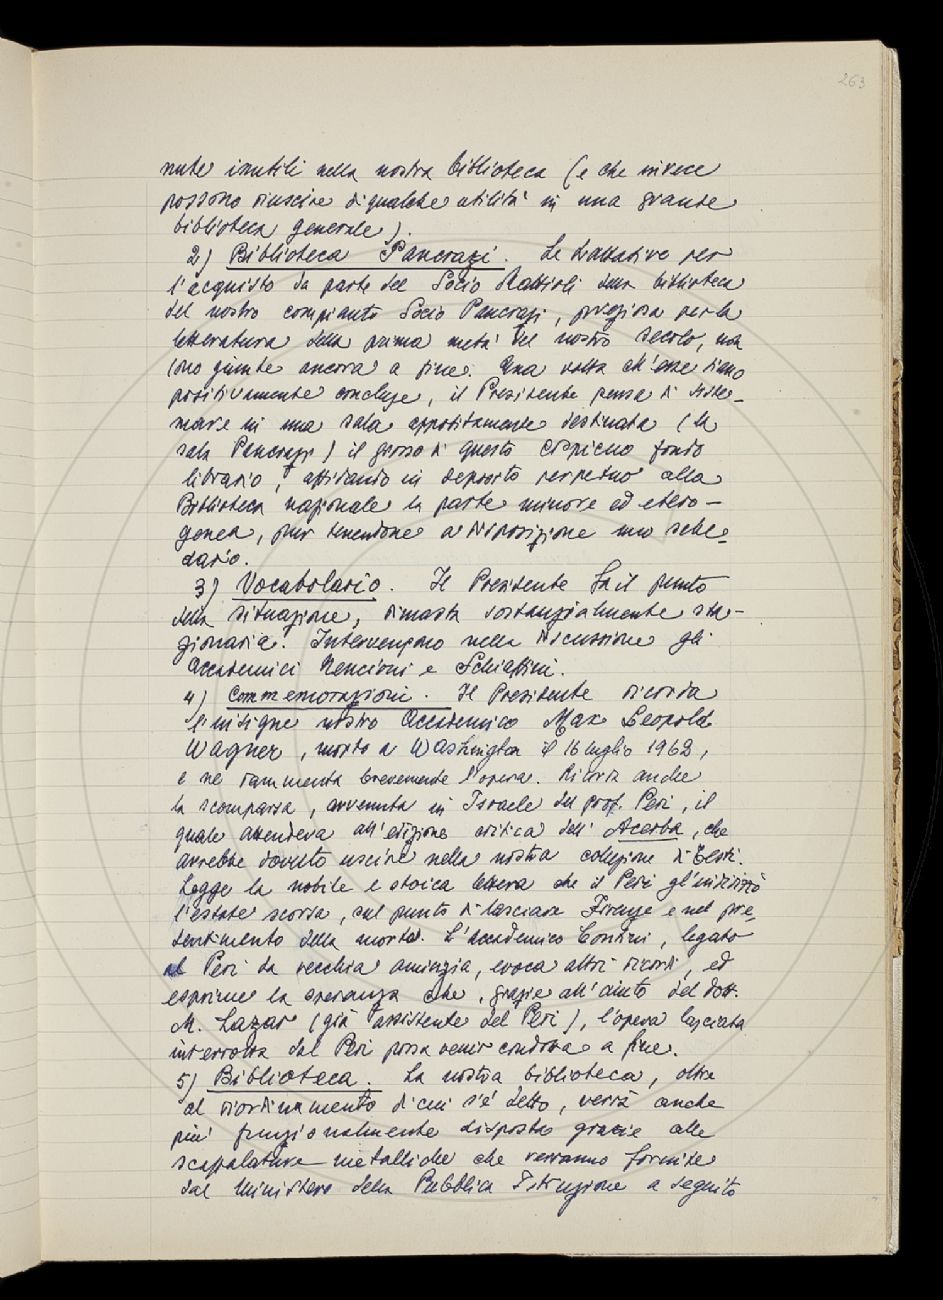 263
nute inutili nella nostra biblioteca (e che invece
possono riuscire di qualche utilità in una grande
biblioteca generale).
2) Biblioteca Pancrazi. Le trattative per
l'acquisto da parte del Socio Mattioli della biblioteca
del nostro compianto Socio Pancrazi, preziosa per la
letteratura della prima metà del nostro secolo, non
sono giunte ancora a fine. Una volta ch'esse siano
positivamente concluse, il Presidente pensa di siste-
mare in una sala appositamente destinata (la
sala Pancrazi) il grosso di questo cospicuo fondo
librario, affidando in deposito perpetuo alla
Biblioteca nazionale la parte minore ed etero-
genea, pur tenendone a disposizione uno sche-
dario.
3) Vocabolario. Il Presidente fa il punto
della situazione, rimasta sostanzialmente sta-
zionaria. Intervengono nella discussione gli
Accademici Nencioni e Schiaffini.
4) Commemorazioni. Il Presidente ricorda
l'insigne nostro Accademico Max Leopold
Wagner, morto a Washington il 16 luglio 1962,
e ne rammenta brevemente l'opera. Ricorda anche
la scomparsa, avvenuta in Israele del prof. Peri, il
quale attendeva all'edizione critica dell'Acerba, che
avrebbe dovuto uscire nella nostra collezione di Testi.
Legge la nobile e stoica lettera che il Peri gl'indirizzò
l'estate scorsa, sul punto di lasciare Firenze e nel pre-
sentimento della morte. L'Accademico Contini, legato
al Peri da vecchia amicizia, evoca altri ricordi, ed
esprime la speranza che, grazie all'aiuto del dott.
M. Lazar (già assistente del Peri), l'opera lasciata
interrotta dal Peri possa venir condotta a fine.
5) Biblioteca. La nostra biblioteca, oltre
al riordinamento di cui s'è detto, verrà anche
più funzionalmente disposta grazie alle
scaffalature metalliche che verranno fornite
dal Ministero della Pubblica Istruzione a seguito